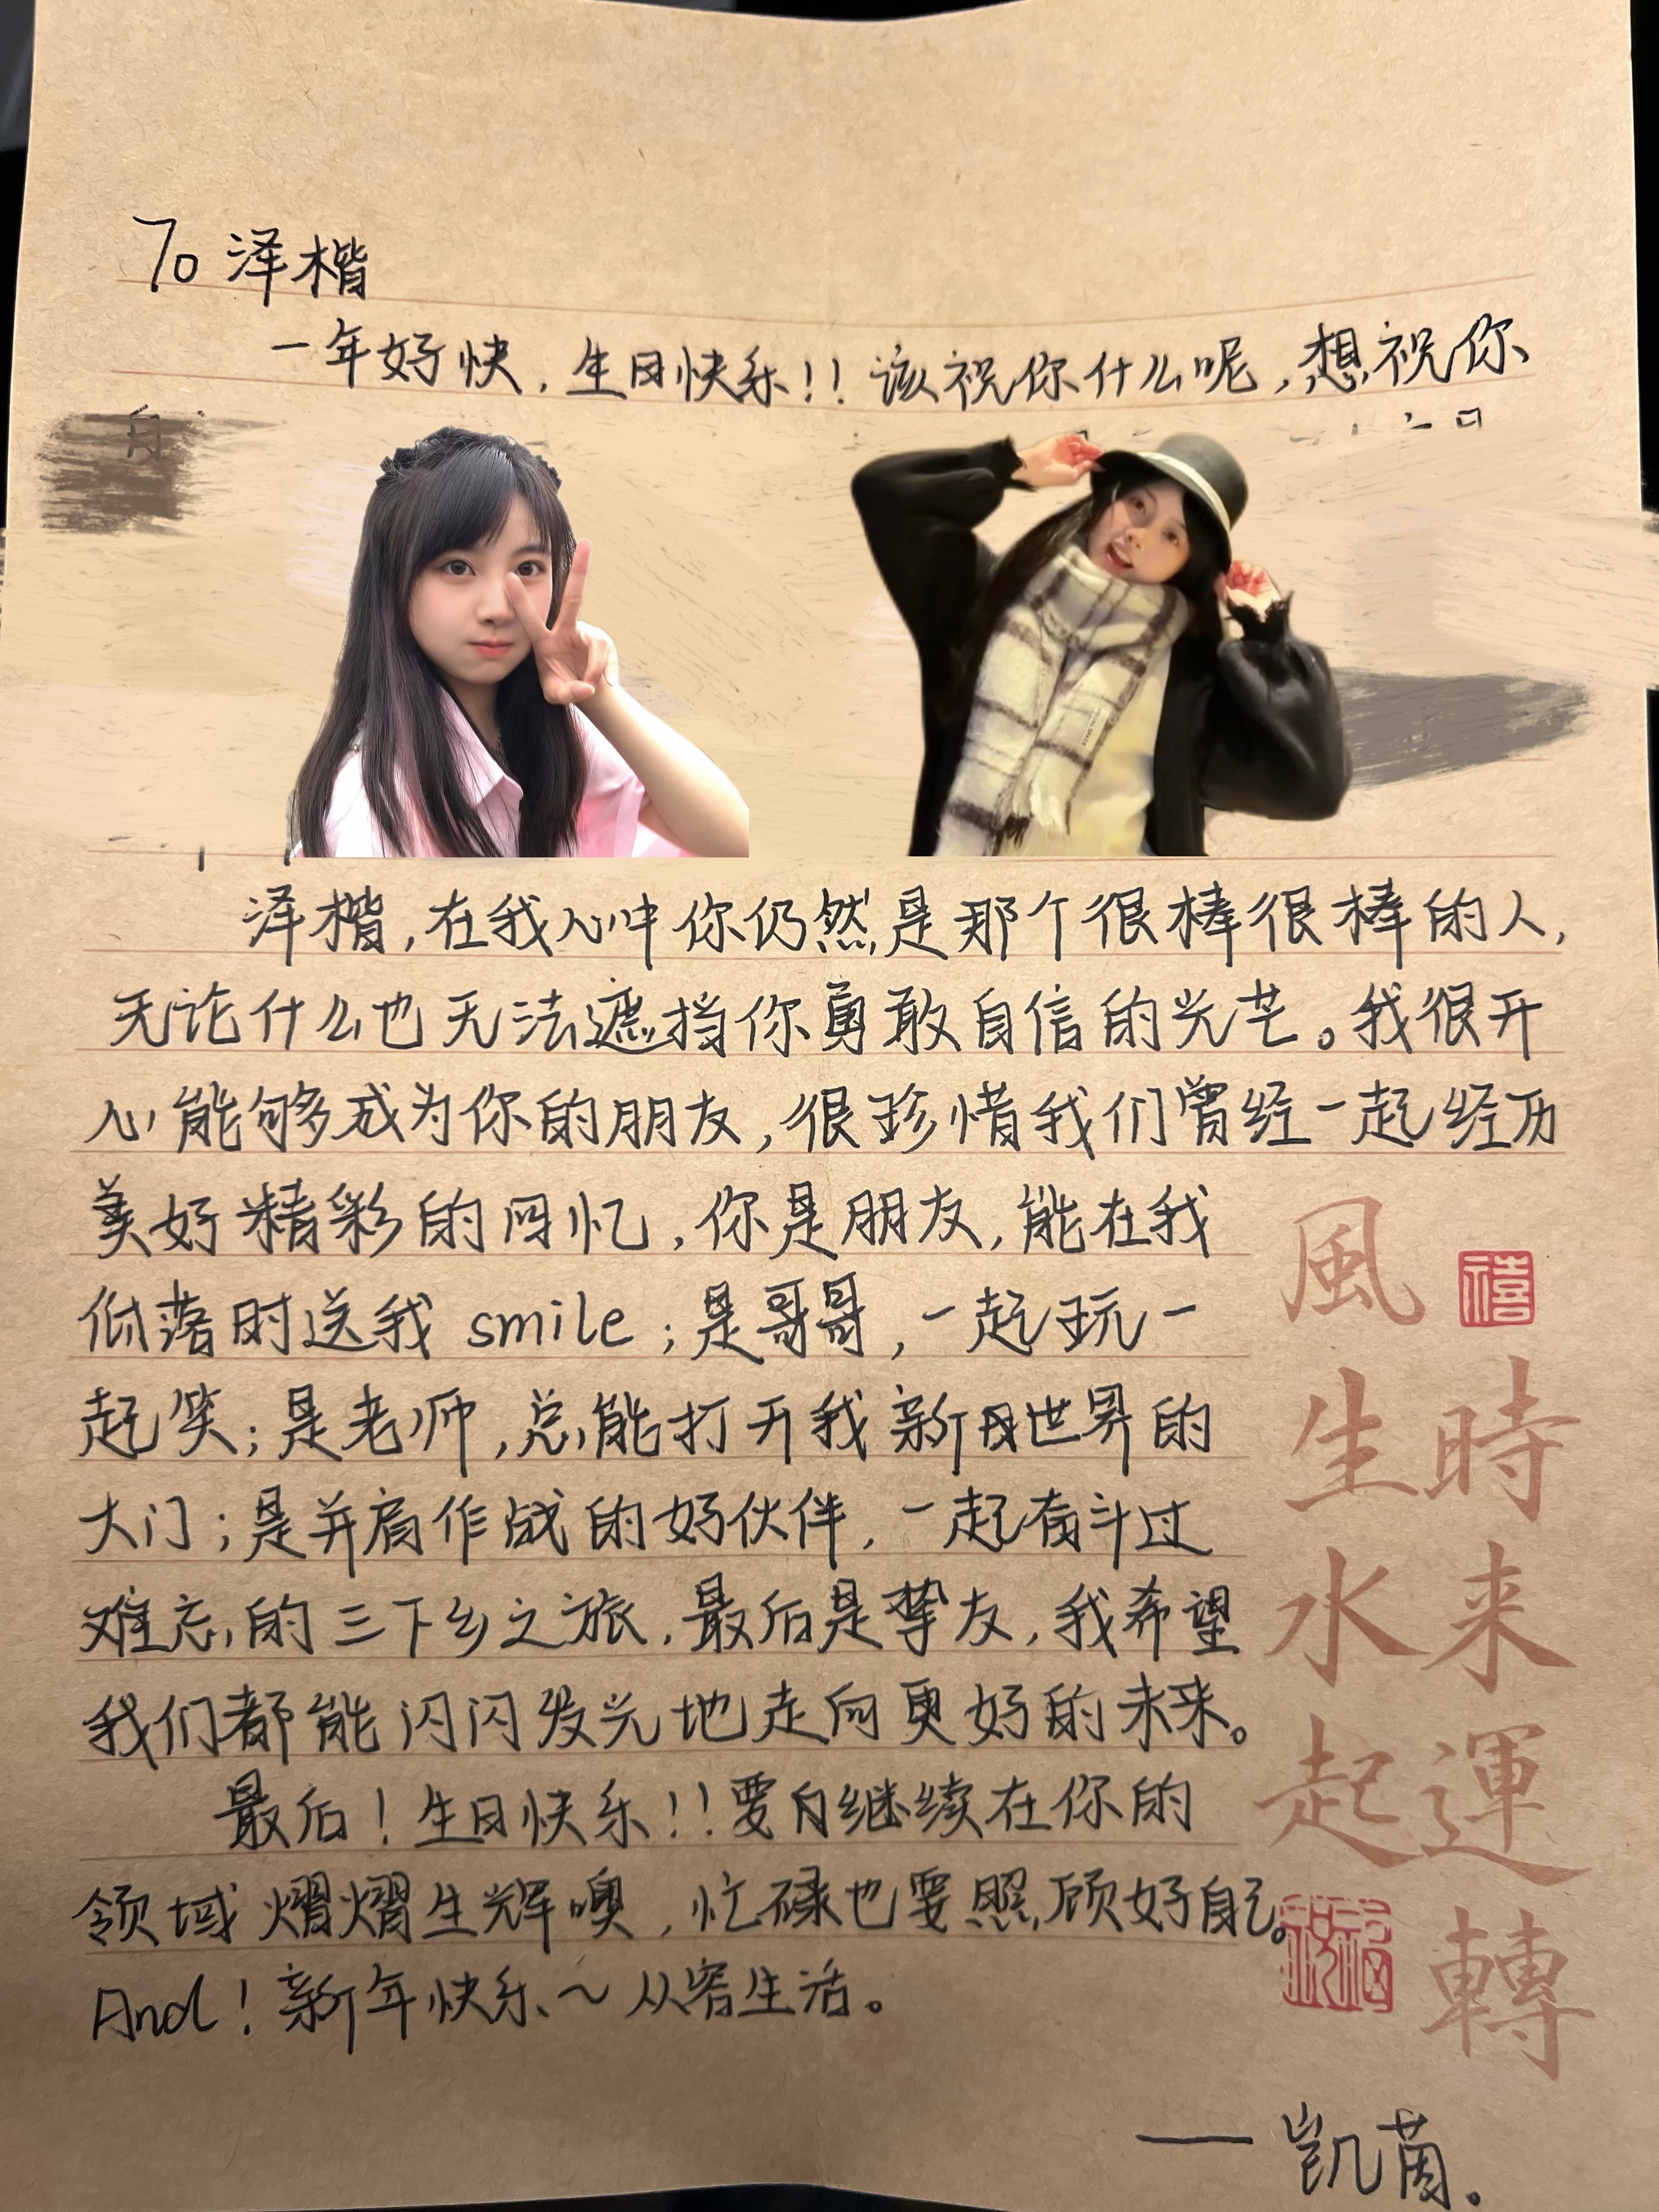 To 泽楷
一年好快,生日快乐!!该祝你什么呢,想祝你
泽楷,在我心中你仍然是那个很棒很棒的人,
无论什么也无法遮挡你勇敢自信的光芒。我很开
心能够成为你的朋友,很珍惜我们曾经一起经历
美好精彩的回忆,你是朋友,能在我
低落时送我 smile;是哥哥,一起玩一
起笑;是老师,总能打开我新世界的
大门;是并肩作战的好伙伴,一起奋斗过
难忘的三下乡之旅,最后是挚友,我希望
我们都能闪闪发光地走向更好的未来。
最后!生日快乐!!要继续在你的
领域熠熠生辉噢,忙碌也要照顾好自己。
And!新年快乐~从容生活。
——凯茵。
禧
時来運轉
風生水起
祝福